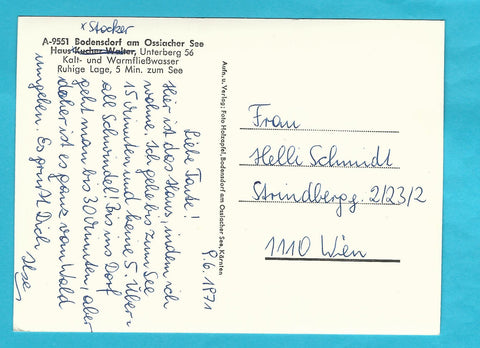 x Stocker
A-9551 Bodensdorf am Ossiacher See
Haus Kucher Walter, Unterberg 56
Kalt- und Warmfließwasser
Ruhige Lage, 5 Min. zum See
9.6.1971
Liebe Tante!
Hier ist das Haus, indem ich
wohne. Ich gehe bis zum See
15 Minuten und keine 5. Über-
all Schwindel! Bis ins Dorf
geht man bis 30 Minuten, aber
daher ist es ganz vom Wald
umgeben. Es grüßt Dich
Ilse
Aufn. u. Verlag: Foto Hohlapfel, Bodensdorf am Ossiacher See, Kärnten
Frau
Helli Schmidt
Strindbergg. 2/23/2
1110 Wien